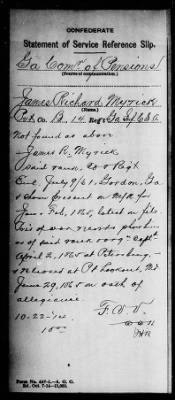 CONFEDERATE
Statement of Service Reference Slip.
Ga Comr. of Pensions
(Source of communication.)
James Richard Myrick
(Name.)
Pvt. Co. B. 14 Reg't Ga
Not found as above
James R. Myrick
said rank, Regt
Enl. July 9/61. Gordon, Ga
show present on M/R for
Jan & Feb. 1865, latest on file.
Pris of war records show
as of said rank Captd
April 2, 1865 at Petersburg
released at Pt Lookout, Md
June 29, 1865 on oath of
allegiance.
F. W. V.
10-22-14
Form No.
Ed. Oct.